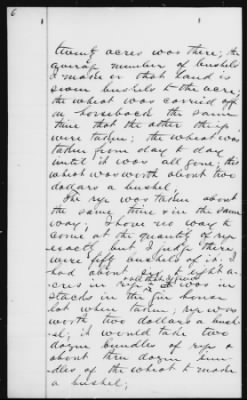 6
twenty acres was there; the
average number of bushels
I made on that land is
seven bushels to the acre;
the wheat was carried off
on horseback the same
time that the other things
were taken; the wheat was
taken from day to day
until it was all gone; the
wheat was worth about two
dollars a bushel.
The rye was taken about
the same time & in the same
way; I have no way to
come at the quantity of rye
exactly but I judge there
were fifty bushels of it. I
had about to eight a-
cres in rye it was in
stacks in the
lot when taken; rye was
worth two dollars a bush-
el; it would take two
dozen bundles of rye &
about three dozen bun-
dles of the wheat to make
a bushel;